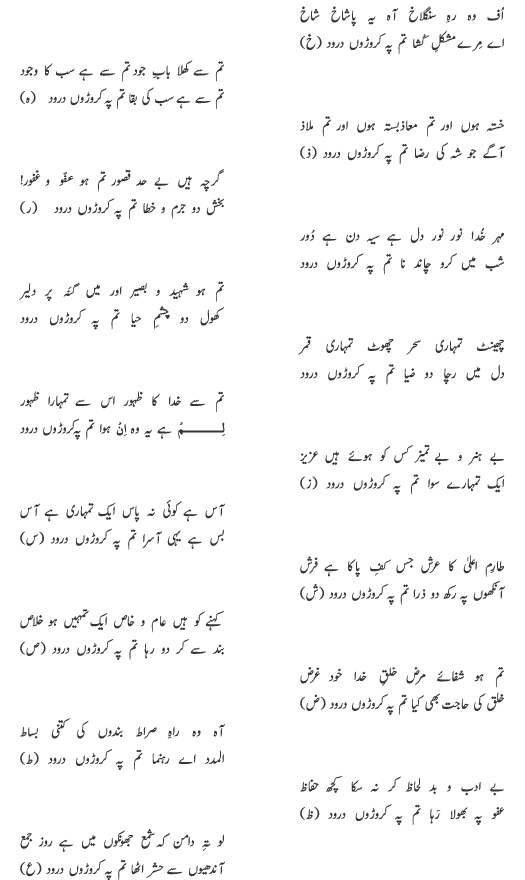 اُف وہ رہِ سنگلاخ آہ یہ پاشاخ شاخ
اے مِرے مشکل کُشا تم پہ کروڑوں درود (خ)
تم سے کھلا بابِ جود تم سے ہے سب کا وجود
تم سے ہے سب کی بقا تم پہ کروڑوں درود (ہ)
خستہ ہوں اور تم معاذ بستہ ہوں اور تم ملاذ
آگے جو شہ کی رضا تم پہ کروڑوں درود (ذ)
گرچہ ہیں بے حد قصور تم ہو عفوّ و غفور!
بخش دو جرم و خطا تم پہ کروڑوں درود (ر)
مہر خُدا نور نور دل ہے سیہ دن ہے دُور
شب میں کرو چاند نا تم پہ کروڑوں درود
تم ہو شہید و بصیر اور میں گنہ پر دلیر
کھول دو چشمِ حیا تم پہ کروڑوں درود
چھینٹ تمہاری سحر چھوٹ تمہاری قمر
دل میں رچا دو ضیا تم پہ کروڑوں درود
تم سے خدا کا ظہور اس سے تمہارا ظہور
لِـــــمْ ہے یہ وہ اِنْ ہوا تم پہ کروڑوں درود
بے ہنر و بے تمیز کس کو ہوئے ہیں عزیز
ایک تمہارے سوا تم پہ کروڑوں درود (ز)
آس ہے کوئی نہ پاس ایک تمہاری ہے آس
بس ہے یہی آسرا تم پہ کروڑوں درود (س)
طارمِ اعلیٰ کا عرش جس کفِ پا کا ہے فرش
آنکھوں پہ رکھ دو ذرا تم پہ کروڑوں درود (ش)
کہنے کو ہیں عام و خاص ایک تمہیں ہو خلاص
بند سے کر دو رہا تم پہ کروڑوں درود (ص)
تم ہو شفائے مرض خلقِ خدا خود غرض
خلق کی حاجت بھی کیا تم پہ کروڑوں درود (ض)
آہ وہ راہِ صراط بندوں کی کتنی بساط
المدد اے رہنما تم پہ کروڑوں درود (ط)
بے ادب و بد لحاظ کر نہ سکا کچھ حفاظ
عفو پہ بھولا رَہا تم پہ کروڑوں درود (ظ)
لو تہِ دامن کہ شمع جھونکوں میں ہے روز جمع
آندھیوں سے حشر اٹھا تم پہ کروڑوں درود (ع)